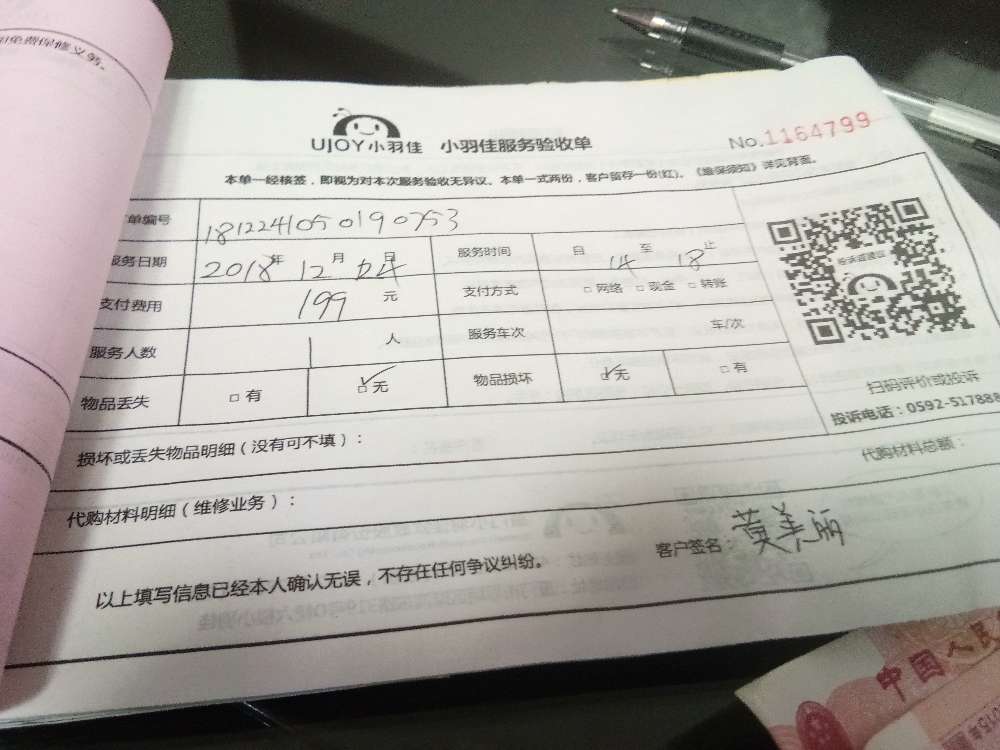 免费保修义务。
UJOY小羽佳 小羽佳服务验收单
No.1164799
本单一经核签，即视为对本次服务验收无异议。本单一式两份，客户留存一份(红)。《维保须知》详见背面。
单编号 181224105019 0753
服务日期 2018年 12月 24日 服务时间 自 14 至 18 止
支付费用 199 元 支付方式 □网络 □现金 □转账
服务人数 1 人 服务车次 车/次
物品丢失 □有 ☑无 物品损坏 ☑无 □有
投诉或建议
扫码评价或投诉
投诉电话：0592-517888
损坏或丢失物品明细（没有可不填）：
代购材料明细（维修业务）： 代购材料总额：
以上填写信息已经本人确认无误，不存在任何争议纠纷。 客户签名：黄美丽
中国人民